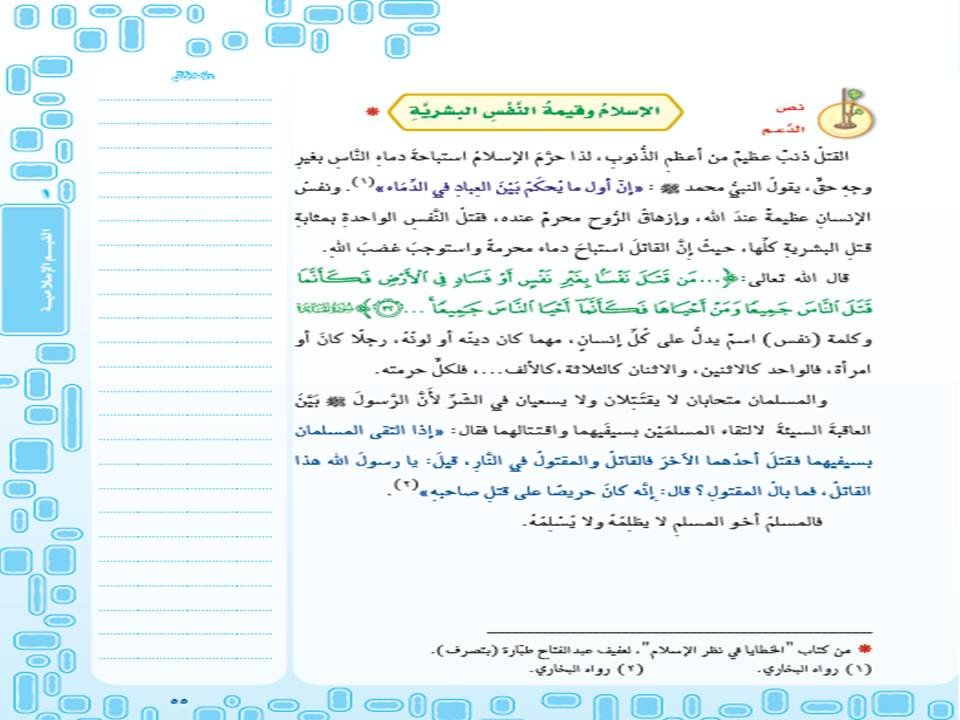 نص
الدَّعم
الإسلامُ وقيمةُ النَّفْسِ البشريَّةِ *
القتلُ ذنبٌ عظيمٌ من أعظمِ الذُّنوبِ، لذا حرَّمَ الإسلامُ استباحةَ دماءِ النَّاسِ بغيرِ
وجهِ حقٍّ، يقولُ النبيُّ محمد ﷺ : «إنّ أول ما يُحكَمُ بَيْنَ العِبادِ في الدِّمَاء»(١). ونفسُ
الإنسانِ عظيمةٌ عندَ الله، وإزهاقُ الرُّوح محرمٌ عنده، فقتلُ النَّفسِ الواحدةِ بمثابةِ
قتلِ البشريةِ كلِّها، حيثُ إنَّ القاتلَ استباحَ دماء محرمةً واستوجبَ غضبَ اللهِ.
قال الله تعالى: ﴿...مَن قَتَلَ نَفْسًۢا بِغَيْرِ نَفْسٍ أَوْ فَسَادٍ فِي ٱلْأَرْضِ فَكَأَنَّمَا
قَتَلَ ٱلنَّاسَ جَمِيعًا وَمَنْ أَحْيَاهَا فَكَأَنَّمَآ أَحْيَا ٱلنَّاسَ جَمِيعًا ...﴾
وكلمة (نفس) اسمٌ يدلُّ على كُلِّ إنسانٍ، مهما كان دينُه أو لونُه، رجلًا كانَ أو
امرأة، فالواحد كالاثنين، والاثنان كالثلاثة،كالألف...، فلكلٍّ حرمته.
والمسلمان متحابان لا يقتَتِلان ولا يسعيان في الشرِّ لأَنَّ الرَّسولَ ﷺ بَيَّنَ
العاقبةَ السيئةَ لالتقاء المسلمَيْن بسيفَيهما واقتتالهما فقال: «إذا التقى المسلمان
بسيفيهما فقتلَ أحدُهما الآخرَ فالقاتلُ والمقتولُ في النَّارِ، قيلَ: يا رسولَ الله هذا
القاتلُ، فما بالُ المقتولِ؟ قال: إنَّه كانَ حريصًا على قتلِ صاحبهِ»(٢).
فالمسلمُ أخو المسلمِ لا يظلِمُهُ ولا يُسْلِمُهُ.
* من كتاب "الخطايا في نظر الإسلام"، لعفيف عبدالفتاح طبّارة (بتصرف).
(١) رواه البخاري. (٢) رواه البخاري.
القيم الإسلامية
٥٥